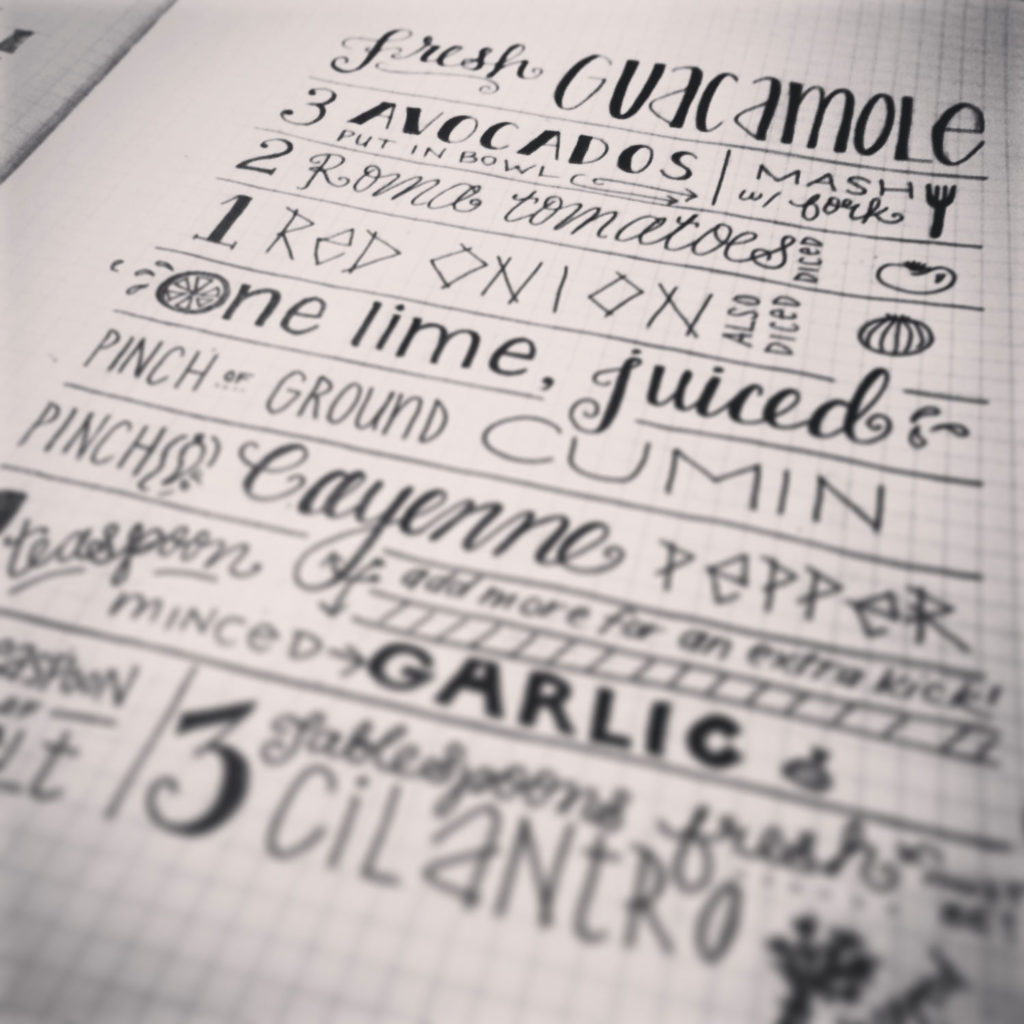 fresh GUACAMOLE
3 AVOCADOS
PUT IN BOWL
MASH
w/ fork
2 Roma tomatoes DICED
1 RED ONION ALSO DICED
One lime, juiced
PINCH OF GROUND CUMIN
PINCH(S) Cayenne PEPPER
add more for an extra kick!
teaspoon
MINCED GARLIC
3 Tablespoons fresh
CILANTRO